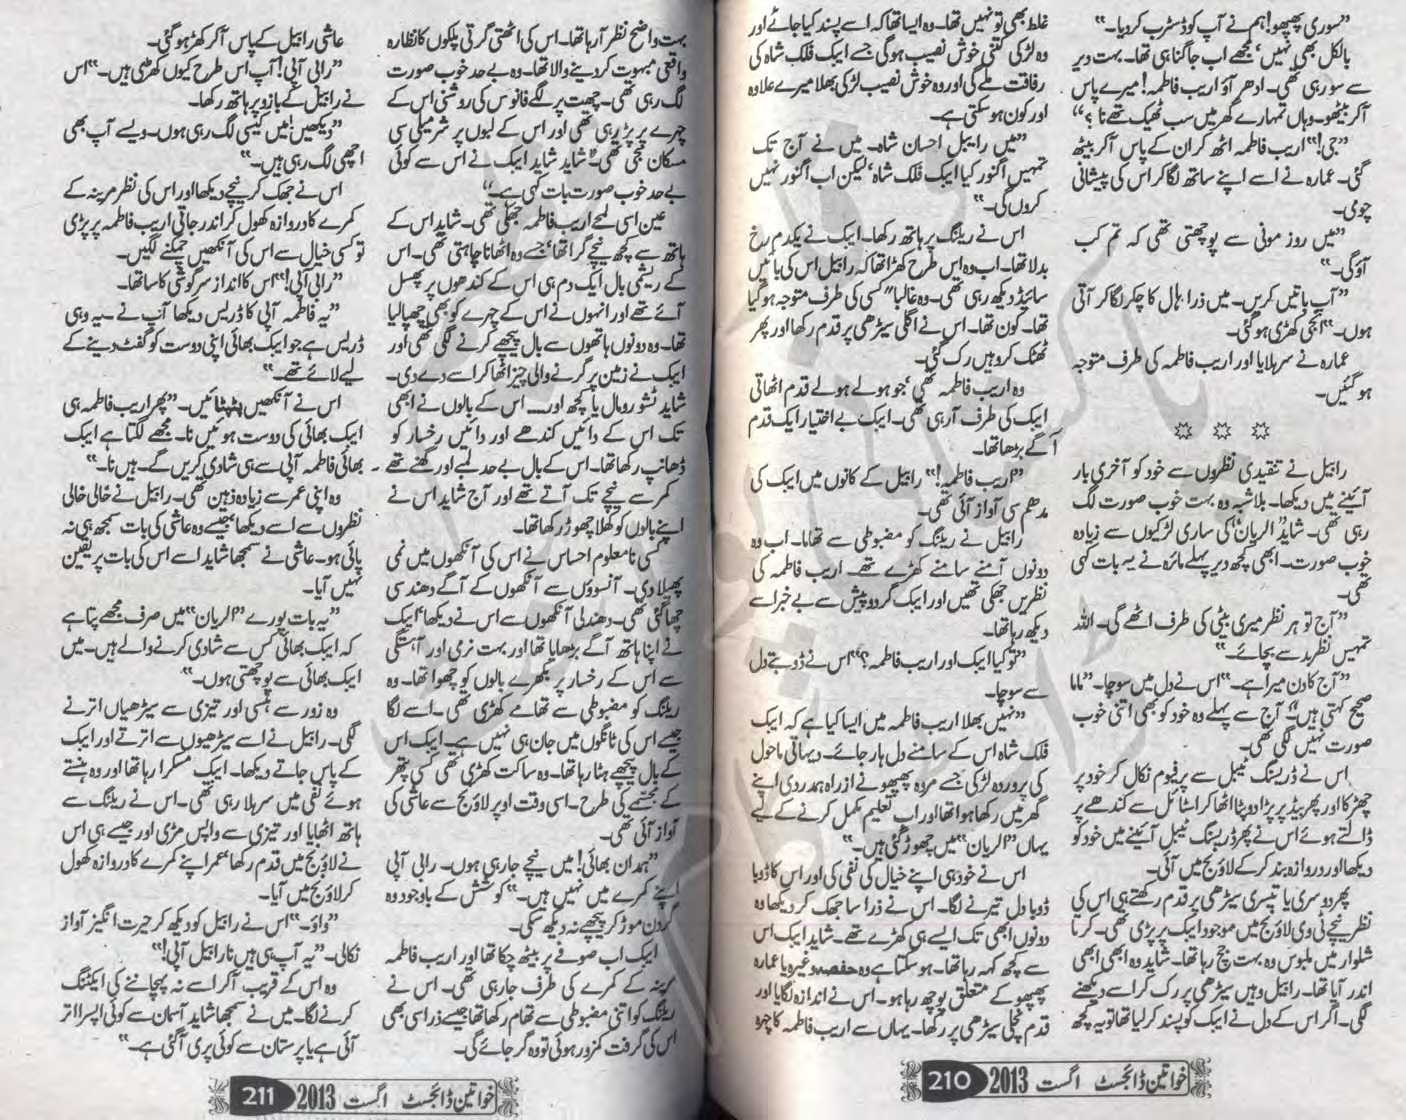 ”سوری پھپھو! ہم نے آپ کو ڈسٹرب کر دیا۔“
بالکل بھی نہیں‘ مجھے اب جاگنا ہی تھا۔ بہت دیر
سے سو رہی تھی۔ ادھر آؤ اریب فاطمہ! میرے پاس
آکر بیٹھو۔ وہاں تمہارے گھر میں سب ٹھیک تھے نا؟“
”جی!“ اریب فاطمہ اٹھ کر ان کے پاس آکر بیٹھ
گئی۔ عمارہ نے اسے اپنے ساتھ لگا کر اس کی پیشانی
چومی۔
”میں روز مونی سے پوچھتی تھی کہ تم کب
آؤ گی۔“
”آپ باتیں کریں۔ میں ذرا ہال کا چکر لگا کر آتی
ہوں۔“ انجی کھڑی ہو گئی۔
عمارہ نے سر ہلایا اور اریب فاطمہ کی طرف متوجہ
ہو گئیں۔
☼ ☼ ☼
رابیل نے تنقیدی نظروں سے خود کو آخری بار
آئینے میں دیکھا۔ بلاشبہ وہ بہت خوب صورت لگ
رہی تھی۔ شاید ”الریان“ کی ساری لڑکیوں سے زیادہ
خوب صورت۔ ابھی کچھ دیر پہلے مائرہ نے یہ بات کہی
تھی۔
”آج تو ہر نظر میری بیٹی کی طرف اٹھے گی۔ اللہ
تمہیں نظر بد سے بچائے۔“
”آج کا دن میرا ہے۔“ اس نے دل میں سوچا۔ ”ماما
صحیح کہتی ہیں۔“ آج سے پہلے وہ خود کو بھی اتنی خوب
صورت نہیں لگی تھی۔
اس نے ڈریسنگ ٹیبل سے پرفیوم نکال کر خود پر
چھڑکا اور پھر بیڈ پر پڑا دوپٹا اٹھا کر اسٹائل سے کندھے پر
ڈالتے ہوئے اس نے پھر ڈریسنگ ٹیبل آئینے میں خود کو
دیکھا اور دروازہ بند کر کے لاؤنج میں آئی۔
پھر دوسری یا تیسری سیڑھی پر قدم رکھتے ہی اس کی
نظر نیچے ٹی وی لاؤنج میں موجود ایبک پر پڑی تھی۔ کرتا
شلوار میں ملبوس وہ بہت جچ رہا تھا۔ شاید وہ ابھی ابھی
اندر آیا تھا۔ رابیل وہیں سیڑھی پر رک کر اسے دیکھنے
لگی۔ اگر اس کے دل نے ایبک کو پسند کر لیا تھا تو یہ کچھ
غلط بھی تو نہیں تھا۔ وہ ایسا تھا کہ اسے پسند کیا جائے اور
وہ لڑکی کتنی خوش نصیب ہو گی جسے ایبک فلک شاہ کی
رفاقت ملے گی اور وہ خوش نصیب لڑکی بھلا میرے علاوہ
اور کون ہو سکتی ہے۔
”میں رابیل احسان شاہ۔ میں نے آج تک
تمہیں اگنور کیا ایبک فلک شاہ‘ لیکن اب اگنور نہیں
کروں گی۔“
اس نے ریلنگ پر ہاتھ رکھا۔ ایبک نے یکدم رخ
بدلا تھا۔ اب وہ اس طرح کھڑا تھا کہ رابیل اس کی بائیں
سائیڈ دیکھ رہی تھی۔ وہ غالباً ”کسی کی طرف متوجہ ہو گیا
تھا۔ کون تھا۔ اس نے اگلی سیڑھی پر قدم رکھا اور پھر
ٹھٹک کر وہیں رک گئی۔
وہ اریب فاطمہ تھی‘ جو ہولے ہولے قدم اٹھاتی
ایبک کی طرف آ رہی تھی۔ ایبک بے اختیار ایک قدم
آگے بڑھا تھا۔
”اریب فاطمہ!“ رابیل کے کانوں میں ایبک کی
مدھم سی آواز آئی تھی۔
رابیل نے ریلنگ کو مضبوطی سے تھاما۔ اب وہ
دونوں آمنے سامنے کھڑے تھے۔ اریب فاطمہ کی
نظریں جھکی تھیں اور ایبک گرد و پیش سے بے خبر اسے
دیکھ رہا تھا۔
”تو کیا ایبک اور اریب فاطمہ؟“ اس نے ڈوبتے دل
سے سوچا۔
”نہیں بھلا اریب فاطمہ میں ایسا کیا ہے کہ ایبک
فلک شاہ اس کے سامنے دل ہار جائے۔ دیہاتی ماحول
کی پروردہ لڑکی جسے مروہ پھپھو نے از راہ ہمدردی اپنے
گھر میں رکھا ہوا تھا اور اب تعلیم مکمل کرنے کے لیے
یہاں ”الریان“ میں چھوڑ گئی ہیں۔“
اس نے خود ہی اپنے خیال کی نفی کی اور اس کا ڈوبا
ڈوبا دل تیرنے لگا۔ اس نے ذرا سا جھک کر دیکھا وہ
دونوں ابھی تک ایسے ہی کھڑے تھے۔ شاید ایبک اس
سے کچھ کہہ رہا تھا۔ ہو سکتا ہے وہ حفصہ وغیرہ یا عمارہ
پھپھو کے متعلق پوچھ رہا ہو۔ اس نے اندازہ لگایا اور
قدم نچلی سیڑھی پر رکھا۔ یہاں سے اریب فاطمہ کا چہرہ
خواتین ڈائجسٹ اگست 2013 210
بہت واضح نظر آ رہا تھا۔ اس کی اٹھتی گرتی پلکوں کا نظارہ
واقعی مبہوت کر دینے والا تھا۔ وہ بے حد خوب صورت
لگ رہی تھی۔ چھت پر لگے فانوس کی روشنی اس کے
چہرے پر پڑ رہی تھی اور اس کے لبوں پر شرمیلی سی
مسکان سجی تھی۔ ”شاید شاید ایبک نے اس سے کوئی
بے حد خوب صورت بات کہی ہے۔“
عین اسی لمحے اریب فاطمہ جھکی تھی۔ شاید اس کے
ہاتھ سے کچھ نیچے گرا تھا‘ جسے وہ اٹھانا چاہتی تھی۔ اس
کے ریشمی بال ایک دم ہی اس کے کندھوں پر پھسل
آئے تھے اور انہوں نے اس کے چہرے کو بھی چھپا لیا
تھا۔ وہ دونوں ہاتھوں سے بال پیچھے کرنے لگی تھی اور
ایبک نے زمین پر گرنے والی چیز اٹھا کر اسے دے دی۔
شاید ٹشو رومال یا کچھ اور.... اس کے بالوں نے ابھی
تک اس کے دائیں کندھے اور دائیں رخسار کو
ڈھانپ رکھا تھا۔ اس کے بال بے حد لمبے اور گھنے تھے۔
کمر سے نیچے تک آتے تھے اور آج شاید اس نے
اپنے بالوں کو کھلا چھوڑ رکھا تھا۔
کسی نامعلوم احساس نے اس کی آنکھوں میں نمی
پھیلا دی۔ آنسوؤں سے آنکھوں کے آگے دھند سی
چھا گئی تھی۔ دھندلی آنکھوں سے اس نے دیکھا‘ ایبک
نے اپنا ہاتھ آگے بڑھایا تھا اور بہت نرمی اور آہستگی
سے اس کے رخسار پر بکھرے بالوں کو چھوا تھا۔ وہ
ریلنگ کو مضبوطی سے تھامے کھڑی تھی۔ اسے لگا
جیسے اس کی ٹانگوں میں جان ہی نہیں ہے۔ ایبک اس
کے بال پیچھے ہٹا رہا تھا۔ وہ ساکت کھڑی تھی کسی پتھر
کے مجسمے کی طرح۔ اسی وقت اوپر لاؤنج سے عاشی کی
آواز آئی تھی۔
”ہمدان بھائی! میں نیچے جا رہی ہوں۔ رابی آپی
اپنے کمرے میں نہیں ہیں۔“ کوشش کے باوجود وہ
گردن موڑ کر پیچھے نہ دیکھ سکی۔
ایبک اب صوفے پر بیٹھ چکا تھا اور اریب فاطمہ
مرینہ کے کمرے کی طرف جا رہی تھی۔ اس نے
ریلنگ کو اتنی مضبوطی سے تھام رکھا تھا جیسے ذرا سی بھی
اس کی گرفت کمزور ہوئی تو وہ گر جائے گی۔
عاشی رابیل کے پاس آکر کھڑ ہو گئی۔
”رابی آپی! آپ اس طرح کیوں کھڑی ہیں۔“ اس
نے رابیل کے بازو پر ہاتھ رکھا۔
”دیکھیں! میں کیسی لگ رہی ہوں۔ ویسے آپ بھی
اچھی لگ رہی ہیں۔“
اس نے جھک کر نیچے دیکھا اور اس کی نظر مرینہ کے
کمرے کا دروازہ کھول کر اندر جاتی اریب فاطمہ پر پڑی
تو کسی خیال سے اس کی آنکھیں چمکنے لگیں۔
”رابی آپی!“ اس کا انداز سرگوشی کا سا تھا۔
”یہ فاطمہ آپی کا ڈریس دیکھا آپ نے۔ یہ وہی
ڈریس ہے جو ایبک بھائی اپنی دوست کو گفٹ دینے کے
لیے لائے تھے۔“
اس نے آنکھیں پٹپٹائیں۔ ”پھر اریب فاطمہ ہی
ایبک بھائی کی دوست ہوئیں نا۔ مجھے لگتا ہے ایبک
بھائی فاطمہ آپی سے ہی شادی کریں گے۔ ہیں نا۔“
وہ اپنی عمر سے زیادہ ذہین تھی۔ رابیل نے خالی خالی
نظروں سے اسے دیکھا‘ جیسے وہ عاشی کی بات سمجھ ہی نہ
پائی ہو۔ عاشی نے سمجھا شاید اسے اس کی بات پر یقین
نہیں آیا۔
”یہ بات پورے ”الریان“ میں صرف مجھے پتا ہے
کہ ایبک بھائی کس سے شادی کرنے والے ہیں۔ میں
ایبک بھائی سے پوچھتی ہوں۔“
وہ زور سے ہنسی اور تیزی سے سیڑھیاں اترنے
لگی۔ رابیل نے اسے سیڑھیوں سے اترتے اور ایبک
کے پاس جاتے دیکھا۔ ایبک مسکرا رہا تھا اور وہ ہنستے
ہوئے نفی میں سر ہلا رہی تھی۔ اس نے ریلنگ سے
ہاتھ اٹھایا اور تیزی سے واپس مڑی اور جیسے ہی اس
نے لاؤنج میں قدم رکھا‘ عمر اپنے کمرے کا دروازہ کھول
کر لاؤنج میں آیا۔
”واؤ۔“ اس نے رابیل کو دیکھ کر حیرت انگیز آواز
نکالی۔ ”یہ آپ ہی ہیں نا رابیل آپی!“
وہ اس کے قریب آکر اسے نہ پہچاننے کی ایکٹنگ
کرنے لگا۔ میں نے سمجھا شاید آسمان سے کوئی اپسرا اتر
آئی ہے یا پرستان سے کوئی پری آ گئی ہے۔“
خواتین ڈائجسٹ اگست 2013 211